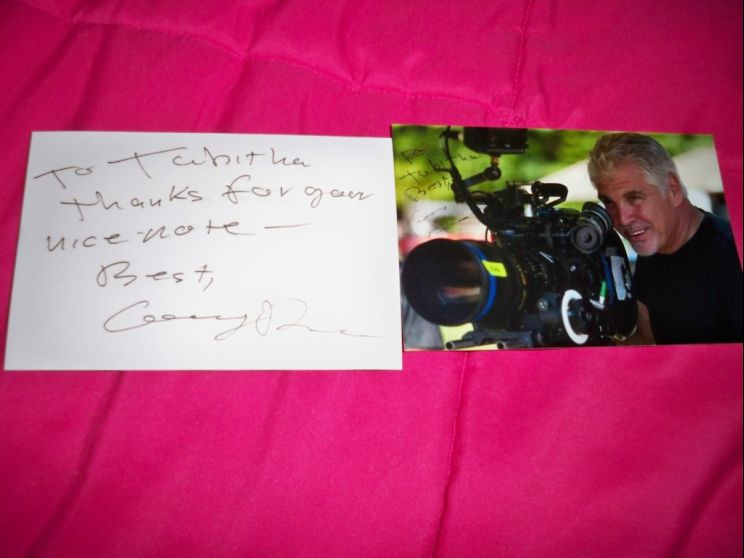 To Tabitha
Thanks for your
nice note —
Best,
To
Tabitha
Best,